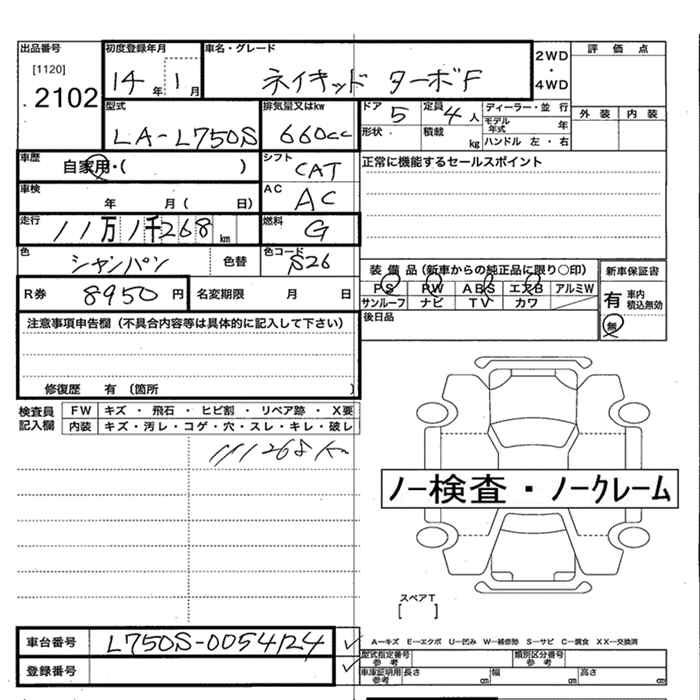 出品番号 初度登録年月 車名・グレード 2WD・4WD 評価点
[1120] 14年 1月 ネイキッド ターボF
2102
型式 排気量又はkw ドア 5 定員 4人 ディーラー・並行 外装 内装
LA-L750S 660cc 形状 積載 kg モデル年式 年
ハンドル 左・右
車歴 自家用・( ) シフト CAT 正常に機能するセールスポイント
車検 年 月( 日) AC AC
走行 11万1千268km 燃料 G
色 シャンパン 色替 色コード S26 装備品(新車からの純正品に限り○印) 新車保証書
R券 8950円 名変期限 月 日 PS PW ABS エアB アルミW 有 車内積込無効
サンルーフ ナビ TV カワ 無
注意事項申告欄(不具合内容等は具体的に記入して下さい) 後日品
修復歴 有 (箇所 )
検査員記入欄 FW キズ・飛石・ヒビ割・リペア跡・X要
内装 キズ・汚レ・コゲ・穴・スレ・キレ・破レ
111268Km
ノー検査・ノークレーム
スペアT
[ ]
車台番号 L750S-0054124 A—キズ E—エクボ U—凹み W—補修跡 S—サビ C—腐食 XX—交換済
登録番号 型式指定番号 参考 類別区分番号 参考
車庫証明用 参考 長さ cm 幅 cm 高さ cm